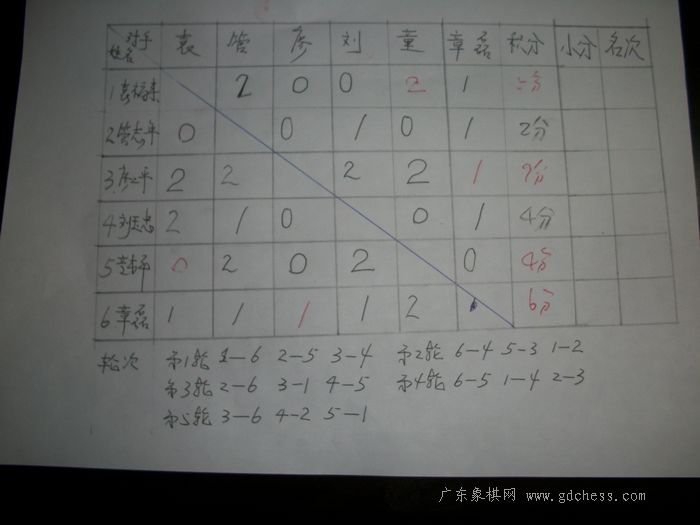 对手 姓名 袁 管 廖 刘 童 章磊 积分 小分 名次
1 袁 2 0 0 2 1 5分
2 管志年 0 0 1 0 1 2分
3 廖二平 2 2 2 2 1 9分
4 刘玉忠 2 1 0 0 1 4分
5 童 0 2 0 2 0 4分
6 章磊 1 1 1 1 2 6分
轮次 第1轮 1—6 2—5 3—4 第2轮 6—4 5—3 1—2
第3轮 2—6 3—1 4—5 第4轮 6—5 1—4 2—3
第5轮 3—6 4—2 5—1
广东象棋网 www.gdchess.com